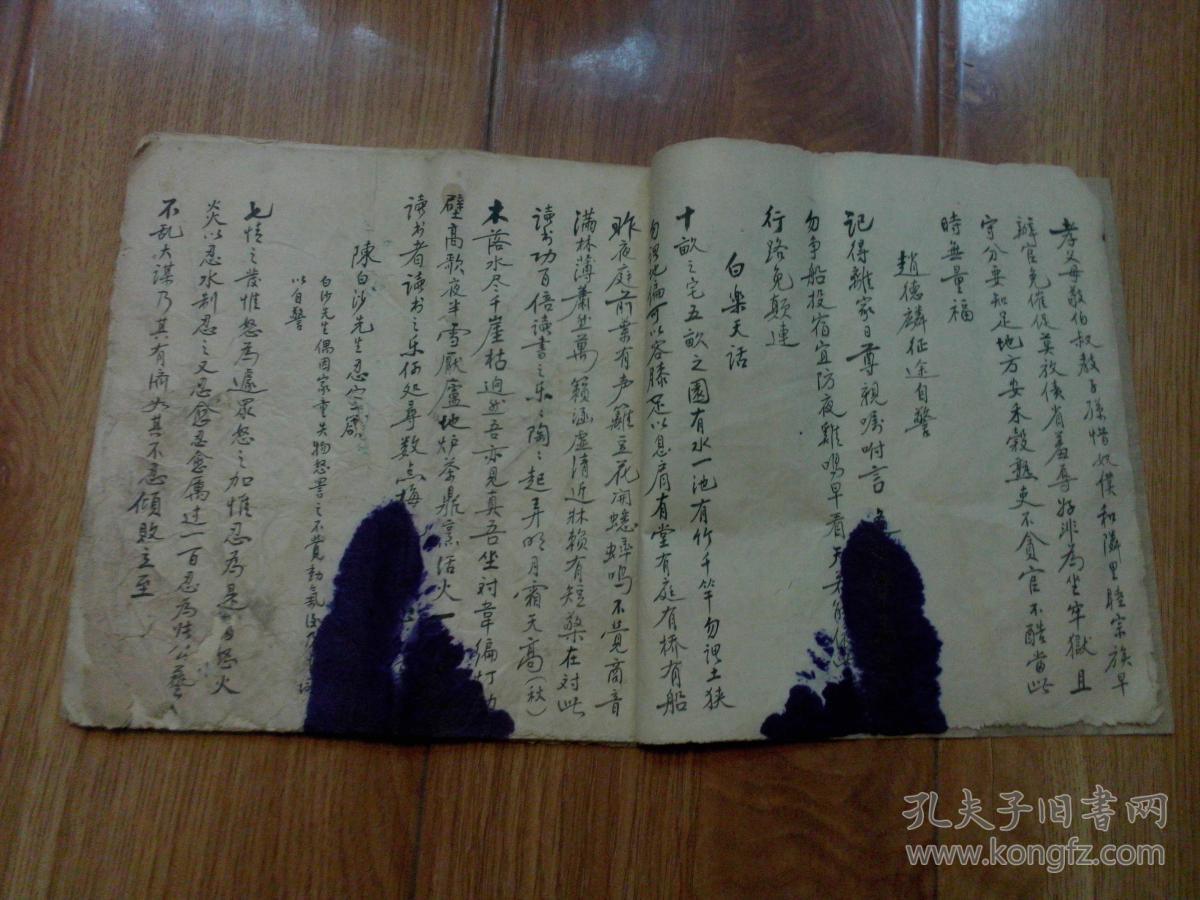 孝父母敬伯叔教子孫惜奴僕和隣里睦宗族早
辦官免催促莫放債有羞辱好非為坐牢獄且
守分要知足地方安禾穀熟吏不貪官不酷當此
時無量福
趙德麟征途自警
記得離家日尊親嘱咐言
勿争船投宿宜防夜雞鳴早看天若能
行路免顛連
白樂天話
十畝之宅五畝之園有水一池有竹千竿勿谓土狭
勿谓地偏可以容膝足以息肩有堂有庭有桥有船
昨夜庭前葉有声籬豆花開蟋蟀鳴不覺商音
满林薄蕭然萬籟涵虚清近牀賴有短檠在对此
读书功百倍读書之乐乐陶陶起弄明月霜天高（秋）
木落水尽千崖枯迥然吾亦見真吾坐对韋編灯动
壁高歌夜半雪厭廬地炉茶鼎烹活火一
读书者读书之乐何处寻数点梅
陳白沙先生忍字箴
白沙先生偶因家童失物怒詈之不覺動氣
以自警
七情之發惟怒為遽眾怒之加惟忍為是當怒火
炎以忍水制忍之又忍愈忍愈厲过一百忍為张公藝
不乱大謀乃其有濟如其不忍傾敗立至
孔夫子旧書网
www.kongfz.com